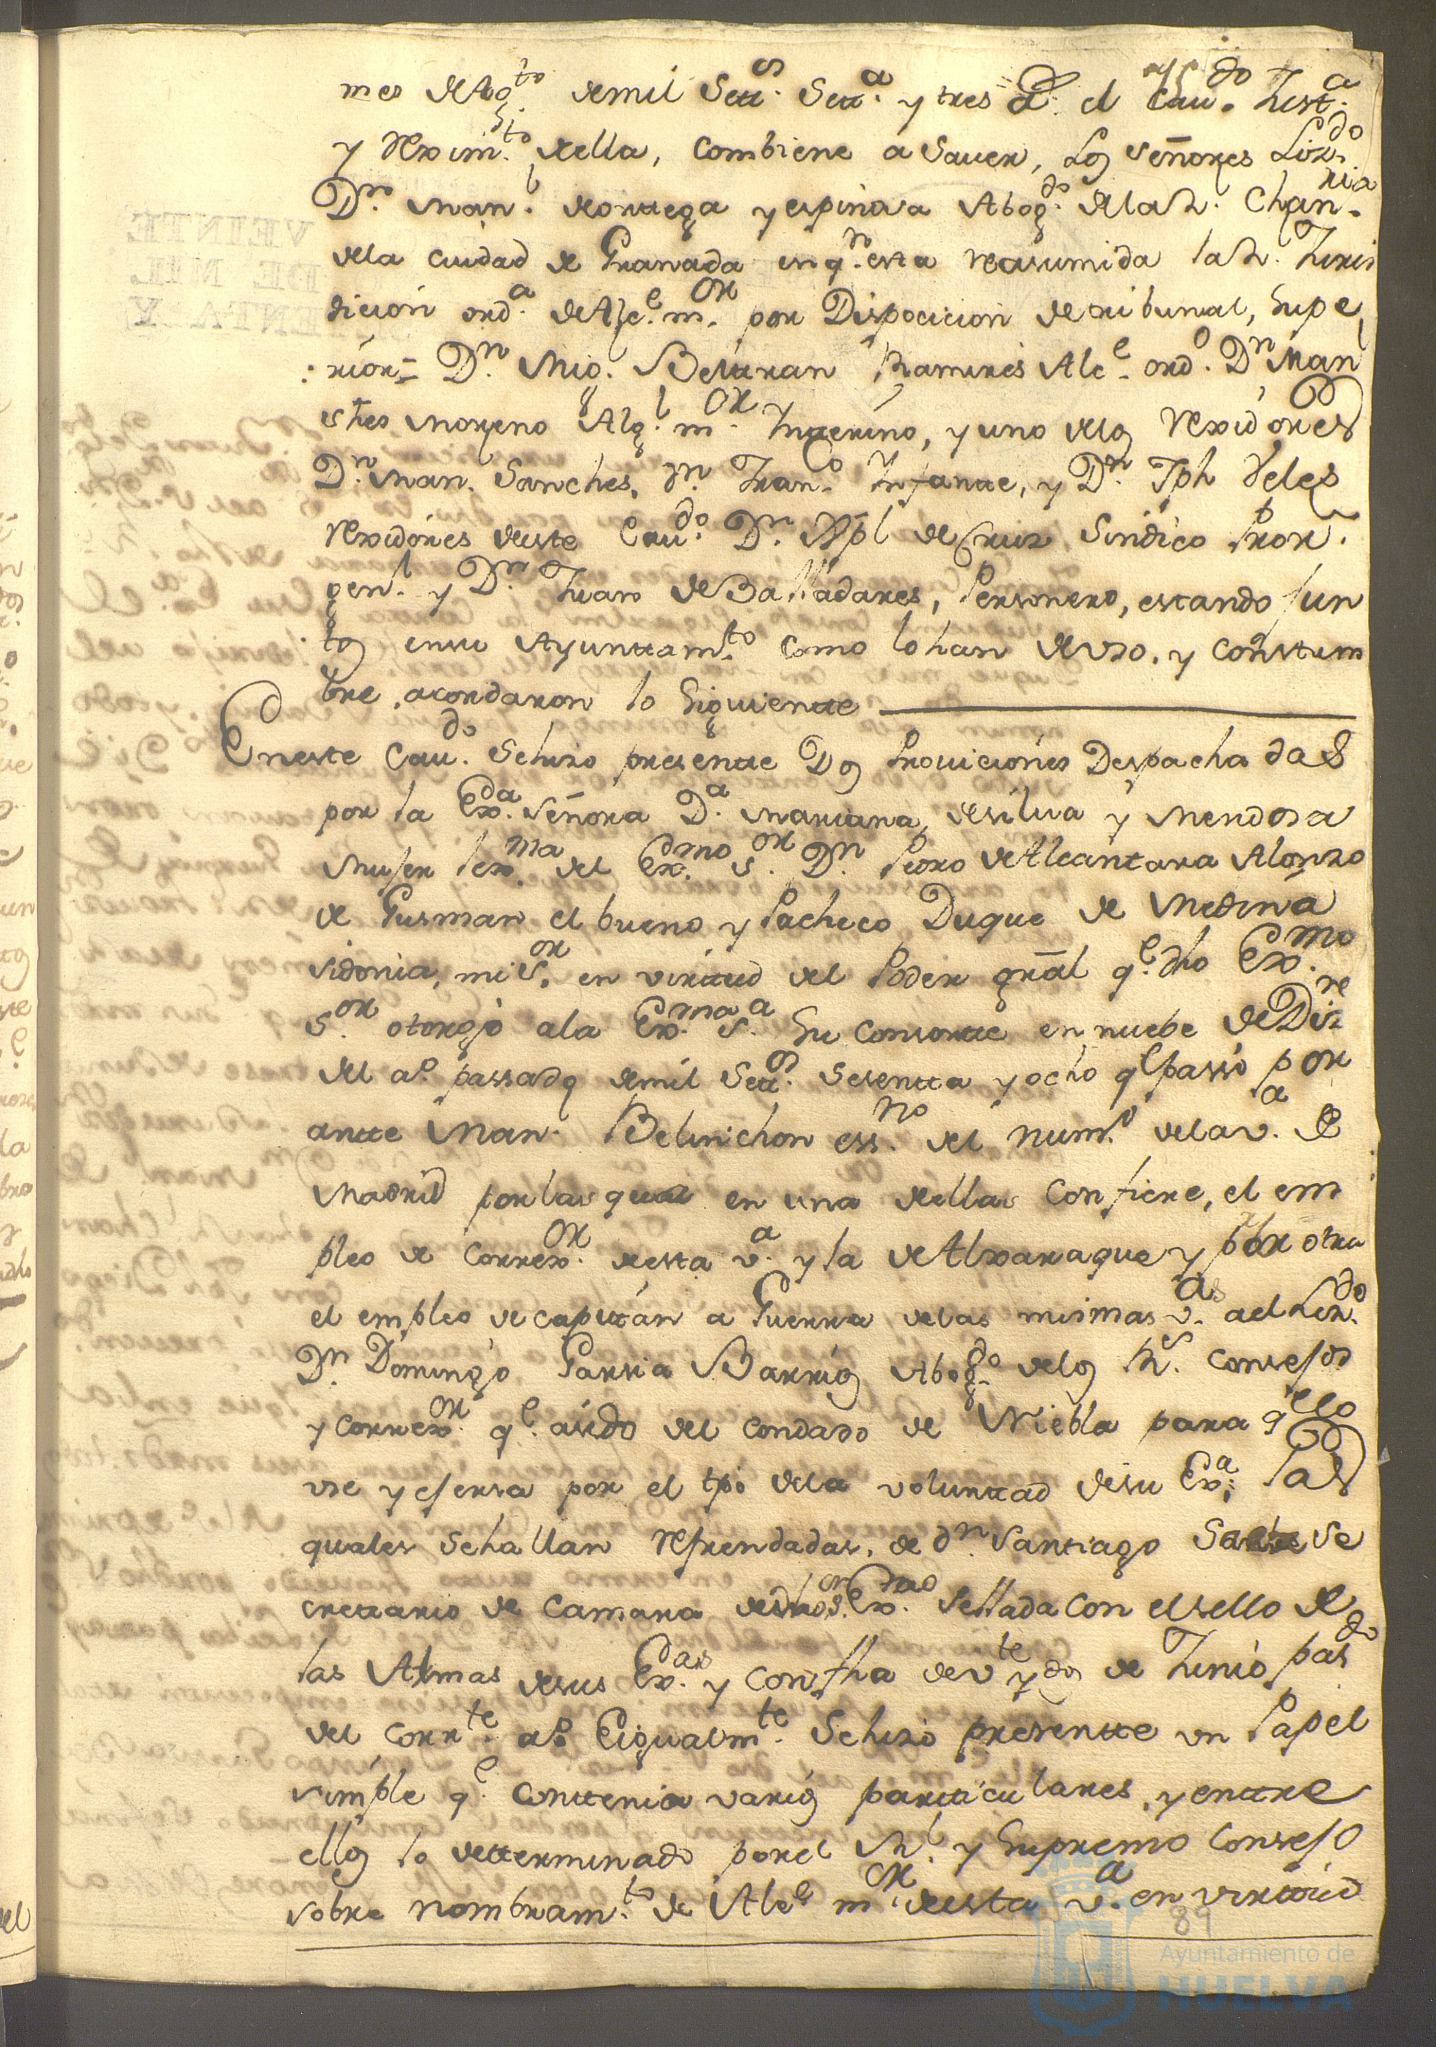 mes de Agto. de mil Settos. Setta. y tres Ds. el Cavdo. Justa.
y Reximto. de ella, combiene a Saver, los señores Lizdo.
Dn. Manl. de ortega y espinosa Abogdo. de la Rl. Chanria.
de la ciudad de Granada en qn. esta reasumida la Rl. Juris
dicion orda. de Alce. mor. por Dispocicion de tribunal, Supe
rior = Dn. Migl. Beltran Ramires Alce. ordo. Dn. Man
Moreno Algl. mor. Ynterino, y uno de los Rexidores
Dn. Man. Sanches, Dn. Franco. Ynfante, y Dn. Jph Veles
Rexidores deeste Cavdo. Dn. Xptl de Cruz Sindico Pror.
genl. y Dn. Juan de Balladares, Personero, estando Jun
tos en su Ayuntamto. como lo han de uso, y costum
bre, acordaron lo Siguiente
En este Cavdo. Se hizo presente Dos Proviciones Despachadas
por la Exda. Señora Da. Mariana, de silva y Mendosa
Mujer lexma. del Exmo. Sor. Dn. Pedro de Alcantara Alonzo
de Gusman el bueno y Pacheco Duque de Medina
sidonia, mi Sor. en virtud del Poder grâl qe. dho Exmo.
Sor. otorgó a la Exma. Sa. Su consorte en nuebe de Dizre
del ao. passado de mil Settos. Sesentta y ocho qe passó por
antte Man. Belinchon essno. del numo. de la va. de
Madrid por las qual en una de ellas confiere, el em
pleo de Correxor. de esta va. y la de Alxaraque y por otra
el empleo de capitán a Guerra de las mismas vas. a el Lizdo.
Dn. Domingo Garsia Barrios Abogdo. de los Rs. consejos
y correxor. qe. a sido del condado de Niebla para qe llo
use y ejersa por el tpo de la voluntad de su Exa. las
quales se hallan refrendadas, de dn. Santiago Saenz Se
cretario de Camara de dho Sor. Exmo. Sellada con el sello de
las Armas de sus Exas. y con fha de vte y dos de Junio pasdo
del corrte. ao. E igualmte. Se hizo presentte un Papel
simple qe. Conttenia varios partticulares, y entre
ellos lo determinado por el Rl. y Supremo Consejo
sobre nombramto. de Alce mor de esta va. en virtud
89
Ayuntamiento de
HUELVA